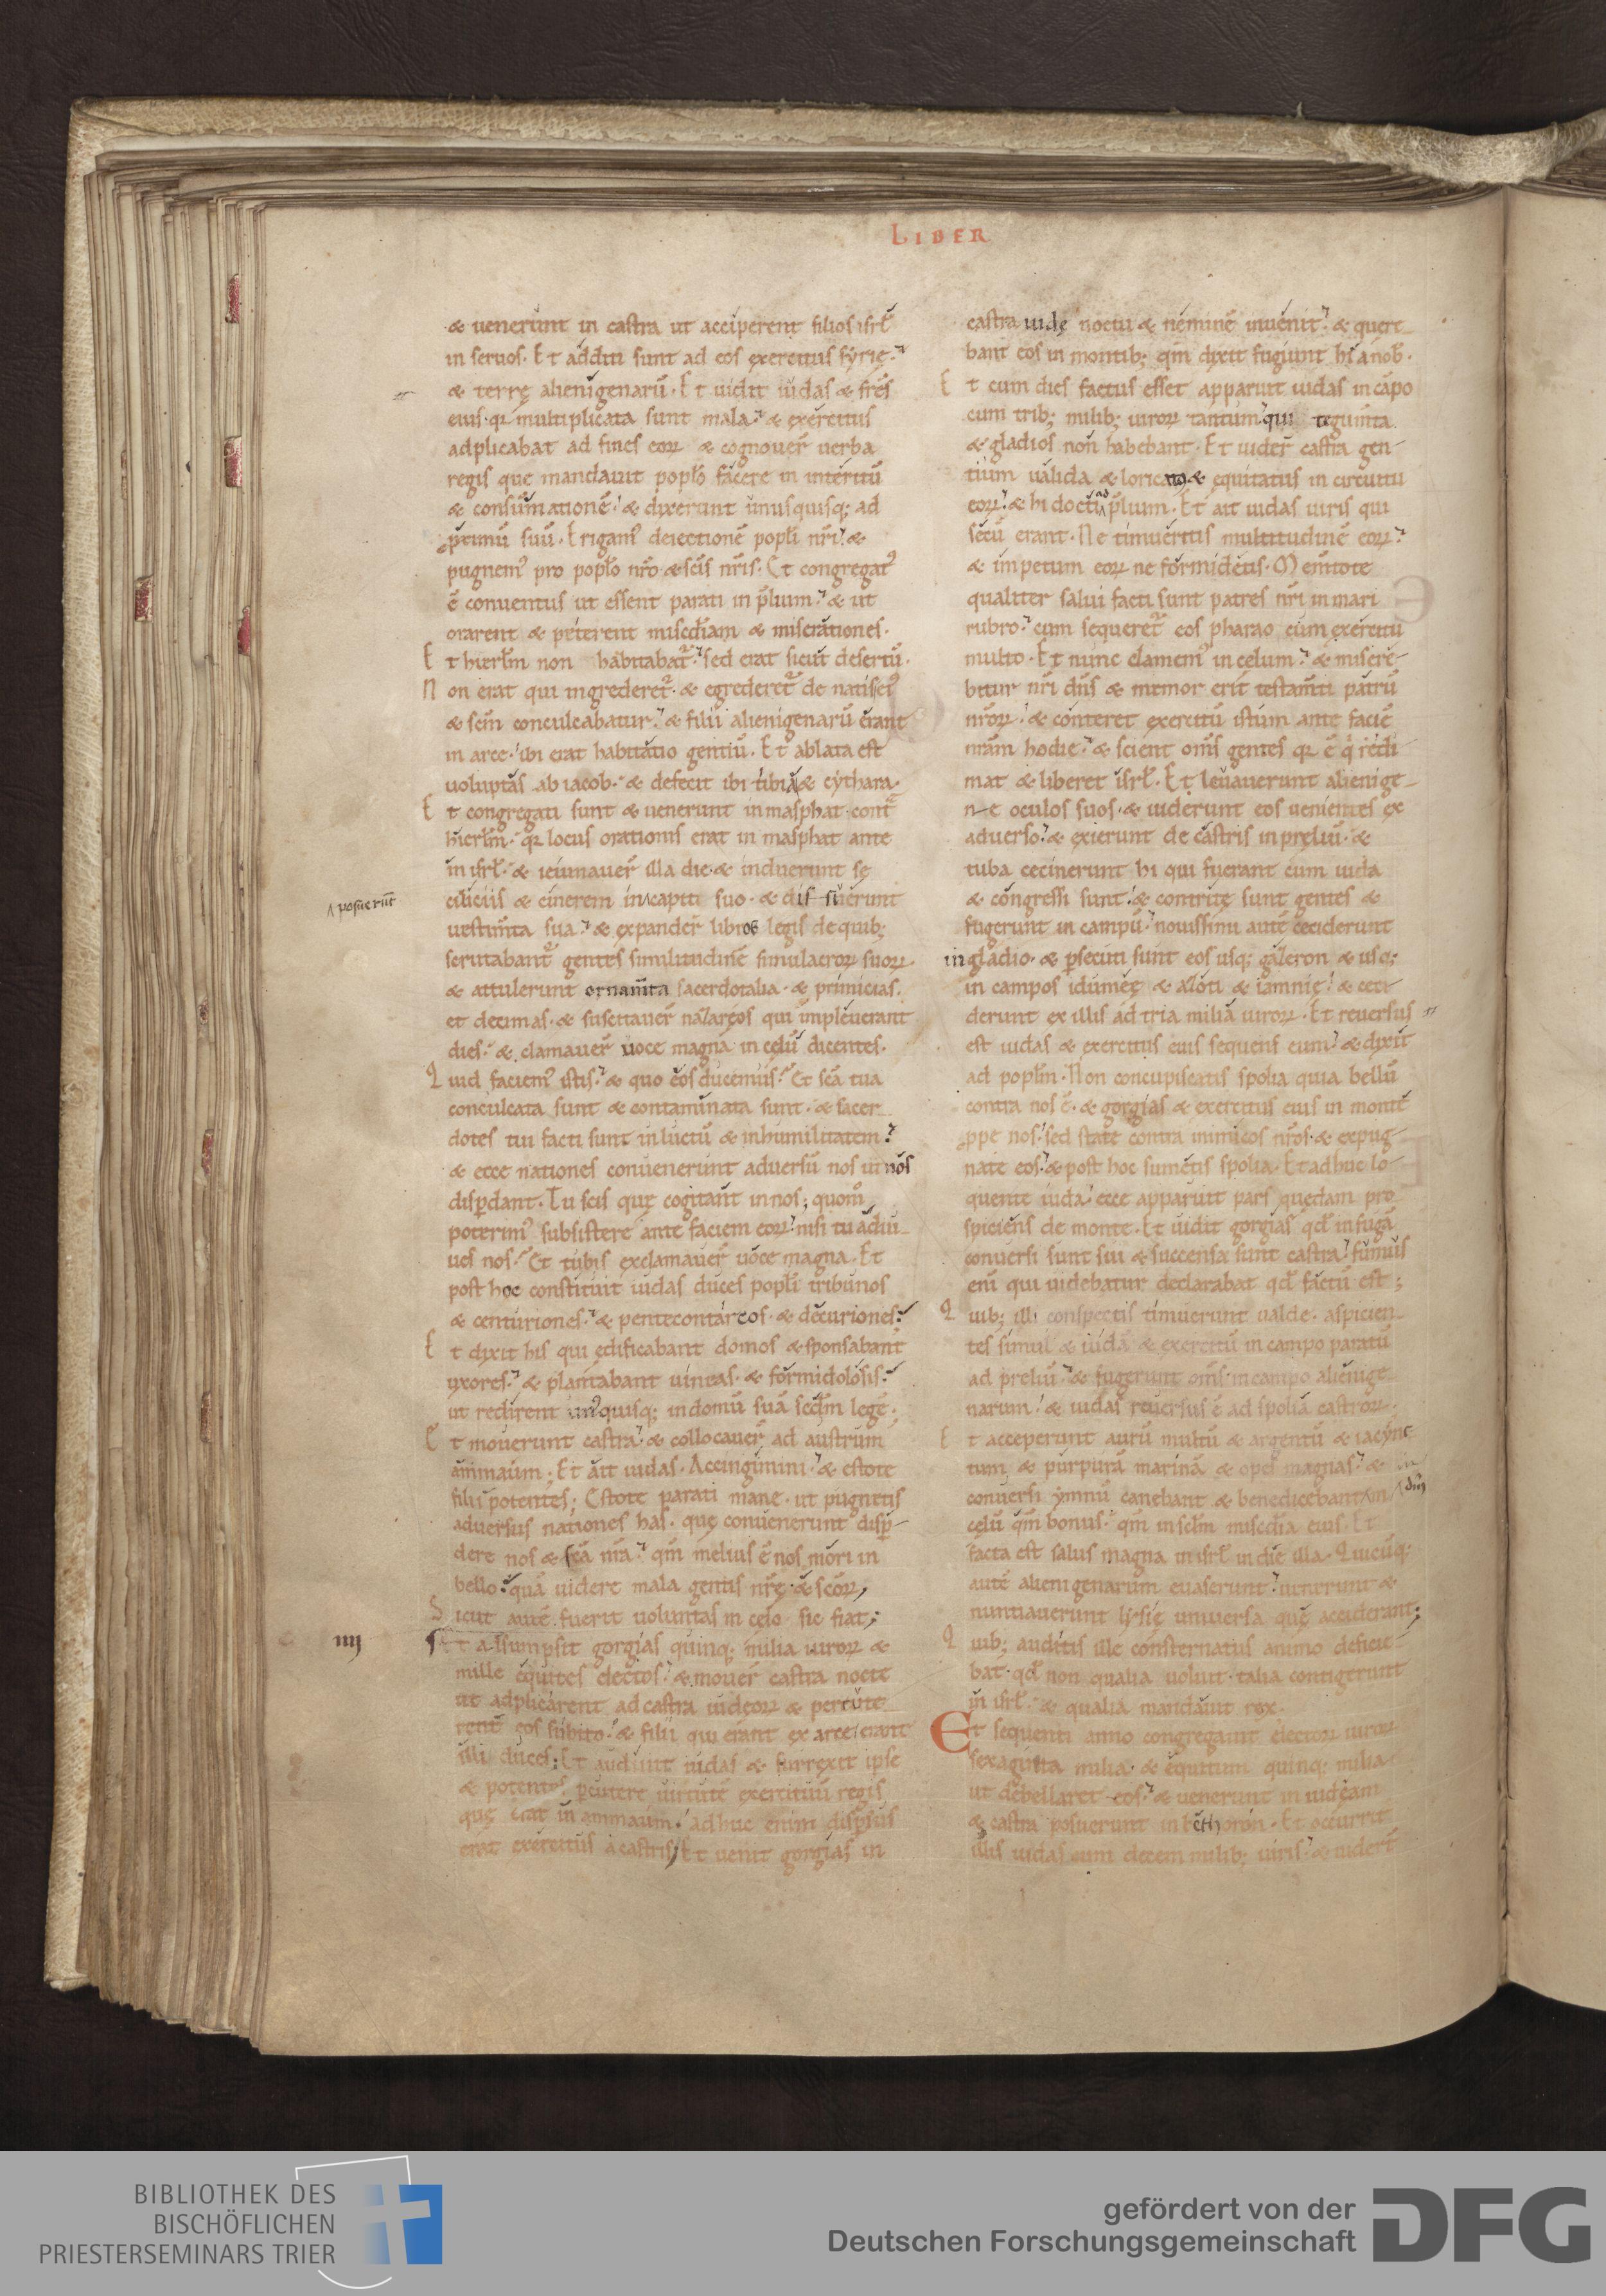 LIBER
& uenerunt in castra ut acciperent filios isrł
in seruos. Et additi sunt ad eos exercitus syrię.
& terrę alienigenarū. Et uidit iudas & frēs
eius. qꝛ multiplicata sunt mala. & exercitus
adplicabat ad fines eoꝝ & cognouer̄ uerba
regis que mandauit popło facere in interitū
& consūmationē. & dixerunt unusquisq; ad
ꝓximū suū. Erigam᾿ deiectionē popłi nr̄i. &
pugnem᾿ pro popło nr̄o & scīs nr̄is. Et congregat᾿
ē conuentus ut essent parati in p̄lium. & ut
orarent & peterent miscdiam & miserationes.
Et hierłm non habitabat᾿. sed erat sicut desertū.
Non erat qui ingrederet᾿. & egrederet᾿ de natis ei᾿
& scm̄ conculcabatur. & filii alienigenarū erant
in arce. ibi erat habitatio gentiū. Et ablata est
uoluptas ab iacob. & defecit ibi tibia & cythara.
Et congregati sunt & uenerunt in masphat. cont᾿
hierłm. qꝛ locus orationis erat in masphat ante
in isrł. & ieiunauer̄ illa die. & induerunt se
ciliciis & cinerem in capiti suo. & dis suerunt
∧ posuerūt
uestim̄ta sua. & expander̄ libros legis de quib;
scrutabant᾿ gentes similitudinē simulacroꝝ suoꝝ.
& attulerunt ornam̄ta sacerdotalia. & primicias.
et decimas. & suscitauer̄ nazareos qui impleuerant
dies. & clamauer̄ uoce magna in cęlū dicentes.
Quid faciem᾿ istis. & quo eos ducemus. Et scā tua
conculcata sunt & contaminata sunt. & sacer
dotes tui facti sunt in luctū & in humilitatem.
& ecce nationes conuenerunt aduersū nos ut nos
disp̱dant. Tu scis quę cogitant in nos; quom̊
poterim᾿ subsistere ante faciem eoꝝ. nisi tu adiu
ues nos. Et tubis exclamauer̄ uoce magna. Et
post hoc constituit iudas duces popłi tribunos
& centuriones. & pentecontarcos. & decuriones.
Et dixit his qui ędificabant domos & sponsabant
uxores. & plantabant uineas. & formidolosis.
ut redirent un᾿quisq; in domū suā scdm legē.
Et mouerunt castra. & collocauer̄ ad austrum
ammaum; Et ait iudas. Accingimini. & estote
filii potentes; Estote parati mane. ut pugnetis
aduersus nationes has. quę conuenerunt disp̱
dere nos & scā nr̄a. qm̄ melius ē nos mori in
bello. quā uidere mala gentis nr̄ę. & scōꝝ,
Sicut autē fuerit uoluntas in cęlo sic fiat;
IIII
Et assumpsit gorgias quinq; milia uiroꝝ &
mille equites electos. & mouer̄ castra nocte
ut adplicarent ad castra iudęoꝝ & percute
rent eos subito. & filii qui erant ex arce erant
illi duces; Et audiuit iudas & surrexit ipse
& potentes p̱cutere uirtutē exercituū regis
quę erat in ammaum. adhuc enim disp̱sus
erat exercitus a castris; Et uenit gorgias in
castra iudę noctu & neminē inuenit. & quere
bant eos in montib; qm̄ dixit fugiunt hi a nob᾿.
Et cum dies factus esset apparuit iudas in cāpo
cum trib; milib; uiroꝝ tantum. qui tegum̄ta
& gladios non habebant. Et uider̄ castra gen
tium ualida & loricatos & equitatus in circuitu
eoꝝ. & hi docti ad p̄lium. Et ait iudas uiris qui
secū erant. Ne timueritis multitudinē eoꝝ.
& impetum eoꝝ ne formidetis. Mem̄tote
qualiter salui facti sunt patres nr̄i in mari
rubro. cum sequeret᾿ eos pharao cum exercitu
multo. Et nunc clamem᾿ in celum. & misere
bitur nr̄i dn̄s & memor erit testam̄ti patrū
nr̄oꝝ. & conteret exercitū istum ante faciē
nr̄am hodie. & scient om̄s gentes qꝛ ē q̇ redi
mat & liberet isrł. Et leuauerunt alienige
nę oculos suos. & uiderunt eos uenientes ex
aduerso. & exierunt de castris in prelıū. &
tuba cecinerunt hi qui fuerant cum iuda
& congressi sunt. & contritę sunt gentes &
fugerunt in campū. nouissimi autē ceciderunt
in gladio. & p̱secuti sunt eos usq; gazeron & usq;
in campos idumeę & azoti & iamnię. & ceci
derunt ex illis ad tria milia uiroꝝ. Et reuersus
est iudas & exercitus eius sequens eum. & dixit
ad popłm. Non concupiscatis spolia quia bellū
contra nos ē. & gorgias & exercitus eius in monte
ꝓpe nos. sed state contra inimicos nr̄os. & expug
nate eos. & post hoc sumetis spolia. Et adhuc lo
quente iuda. ecce apparuit pars quędam pro
spiciens de monte. Et uidit gorgias qđ in fugā
conuersi sunt sui & succensa sunt castra. fumus
enī qui uidebatur declarabat qđ factū est;
Quib; illi conspectis timuerunt ualde. aspicien
tes simul & iudā & exercitū in campo paratū
ad preliū. & fugerunt om̄s in campo alienige
narum. & iudas reuersus ē ad spolia castroꝝ.
Et acceperunt aurū multū & argentū & iacync
tum & purpurā marinā & opes magnas. &
conuersi ymnū canebant & benedicebant ∧ in
∧ dn̄m
cęlū qm̄ bonus. qm̄ in sclm miscdia eius. Et
facta est salus magna in isrł in die illa. Quicūq;
autē alienigenarum euaserunt. uenerunt &
nuntiauerunt lysię uniuersa quę acciderant;
Quib; auditis ille consternatus animo deficie
bat. qđ non qualia uoluit. talia contigerunt
in isrł. & qualia mandauit rex.
Et sequenti anno congregauit electoꝝ uiroꝝ
sexaginta milia. & equitum quinq; milia.
ut debellaret eos. & uenerunt in iudęam
& castra posuerunt in bethoron. Et occurrit
illis iudas cum decem milib; uiris. & uider̄t
BIBLIOTHEK DES
BISCHÖFLICHEN
PRIESTERSEMINARS TRIER
gefördert von der
Deutschen Forschungsgemeinschaft
DFG